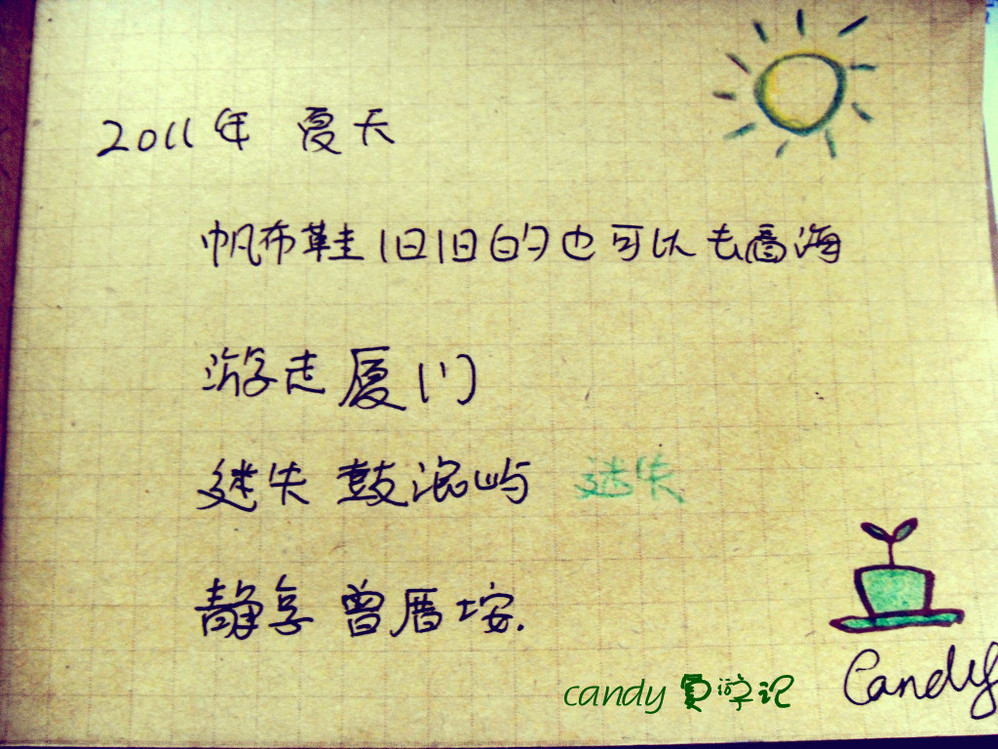 2011年 夏天
帆布鞋旧旧的也可以去看海
游走厦门
迷失 鼓浪屿 迷失
静享 曾厝垵.
candy 夏游记
Candy